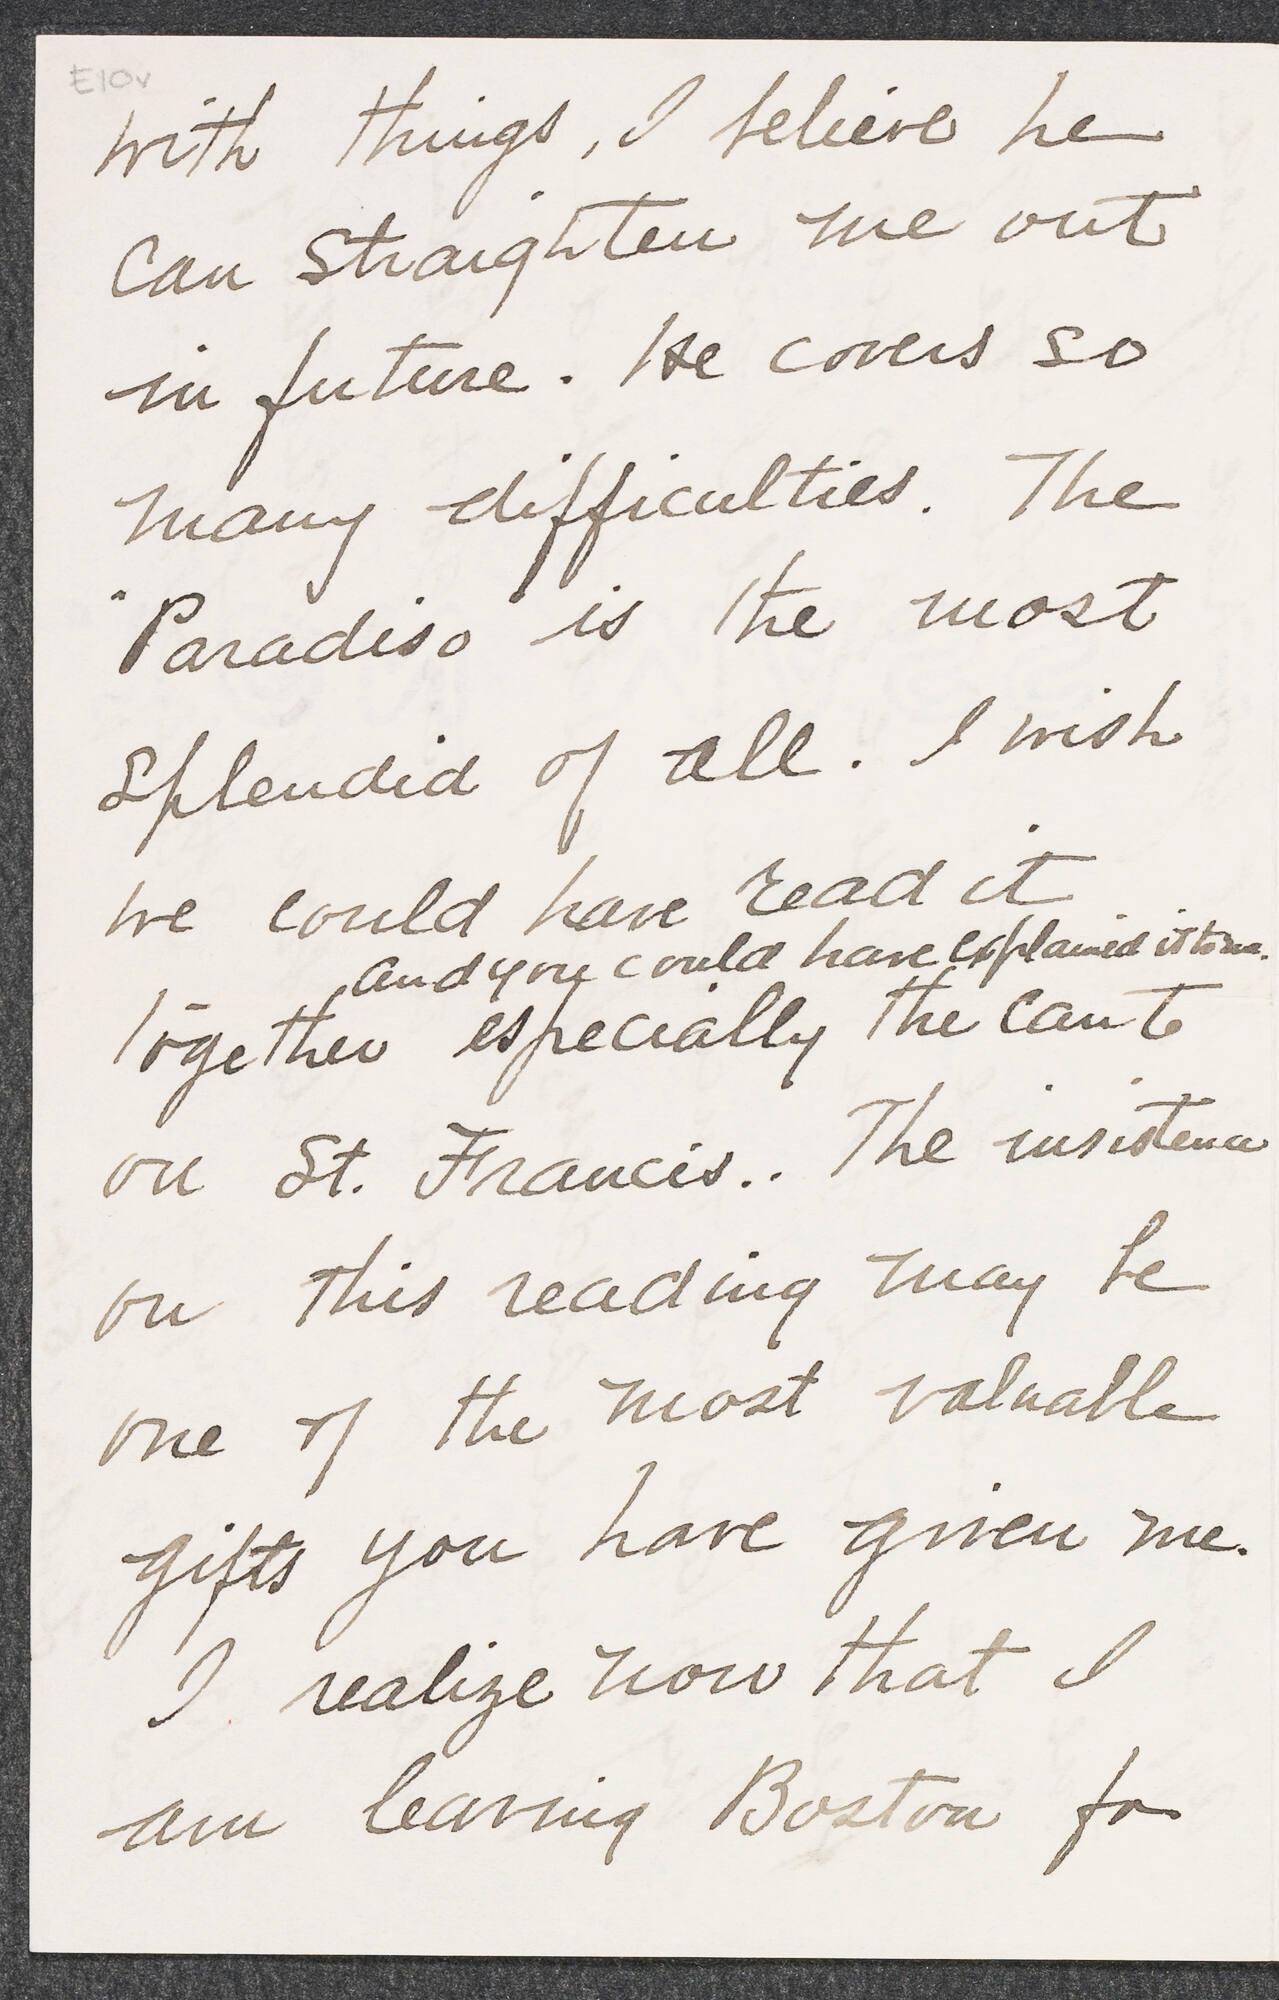 E10v
with things, I believe he
can straighten me out
in future. He covers so
many difficulties. The
"Paradiso" is the most
splendid of all. I wish
we could have read it
and you could have explained it to me.
together especially the canto
on St. Francis.. The insistence
on this reading may be
one of the most valuable
gifts you have given me.
I realize now that I
am leaving Boston for